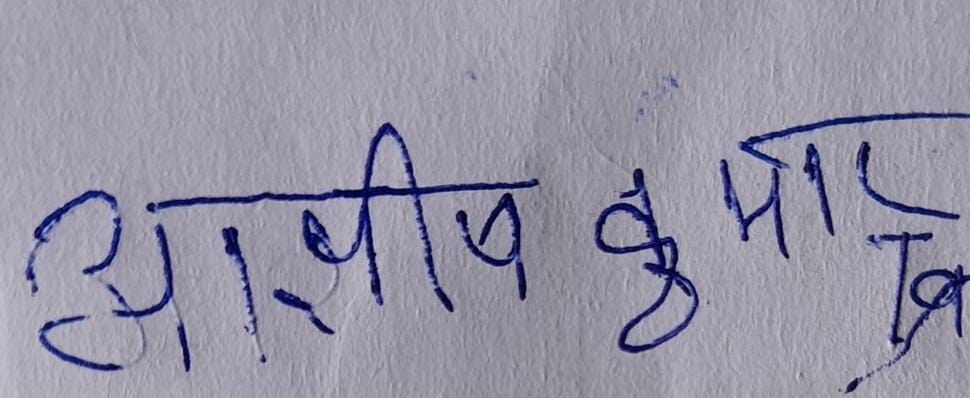 आशीष कुमार